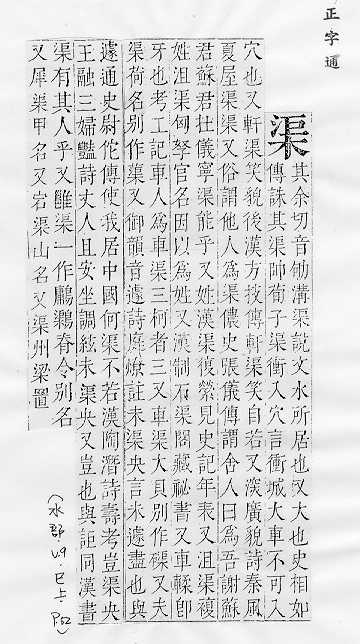 正字通
渠其余切音劬溝渠說文水所居也又大也史相如
傳誅其渠帥荀子渠衝入穴言衝城大車不可入
穴也又軒渠笑貌後漢方技傳軒渠笑自若又深廣貌詩秦風
夏屋渠渠又俗謂他人爲渠儂史張儀傳謂舍人曰爲吾謝蘇
君蘇君壯儀寧渠能乎又姓漢渠復見史記年表又沮渠複
姓沮渠匈孥官名因以爲姓又漢制石渠閣藏祕書又車輮卽
牙也考工記車人爲車渠三柯者三又車渠大貝別作磲又夫
渠荷名別作蕖又御韻音遽詩庭燎註未渠央言未遽盡也與
遽通史尉佗傳使我居中國何渠不若漢陶潛詩壽考豈渠央
王融三婦豔詩丈人且安坐調絃未渠央又豈也與詎同漢書
渠有其人乎又雝渠一作鸈脊令別名
又犀渠甲名又宕渠山名又渠州梁置
(水部 U.9. 巳上. P52)